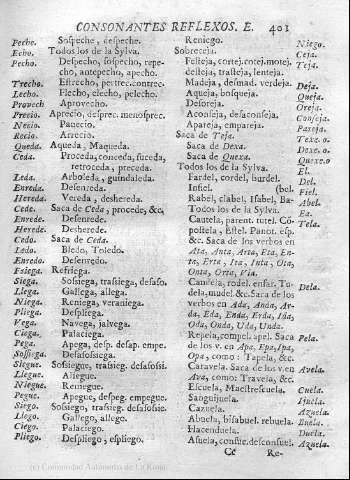 CONSONANTES REFLEXOS. E. 401
Pecho. Sospeche, despeche.
Echo. Todos los de la Sylva.
Pecho. Despecho, sospecho, repe-
cho, antepecho, apecho.
Trecho. Estrecho, pertrec. contrec.
Lecho. Flecho, elecho, pelecho.
Provech Aprovecho.
Precio. Aprecio, desprec. menosprec.
Necio. Panecio.
Recio. Arrecio.
Queda. Aqueda, Maqueda.
Ceda. Proceda, conceda, suceda,
retroceda, preceda.
Leda. Arboleda, guindaleda.
Enreda. Desenreda.
Hereda. Vereda, deshereda.
Cede. Saca de Ceda, procede, &c.
Enrede. Desenrede.
Herede. Desherede.
Cedo. Saca de Ceda.
Ledo. Bledo, Toledo.
Enredo. Desenredo.
Fsiega. Refriega.
Siega. Sosiega, trasiega, desaso.
Llega. Gallega, allega.
Niega. Reniega, veraniega.
Pliega. Despliega.
Vega. Navega, jalvega.
Ciega. Palaciega.
Pega. Apega, desp. desap. empe.
Sosiega. Desasosiega.
Siegue. Sosiegue, trasieg. desasosi.
Llegue. Allegue.
Niegue. Reniegue.
Pegue. Apegue, despeg. empegue.
Siego. Sosiego, trasieg. desasosie.
Llego. Gallego, allego.
Ciego. Palaciego.
Pliego. Despliego, espliego.
Reniego. Niego.
Sobreceja. Ceja.
Festeja, cortej. cotej. motej. Teja.
desteja, trasteja, lenteja.
Madeja, desmad. verdeja. Deja.
Aqueja, bosqueja. Queja.
Desoreja. Oreja.
Aconseja, desaconseja. Conseja.
Apareja, empareja. Pareja.
Saca de Teja. Texe. o.
Saca de Dexa. Dexe. o.
Saca de Quexa. Quexe. o
Todos los de la Sylva. El.
Fardel, cordel, burdel. Del.
Infiel. (bel. Fiel.
Rabel, clabel, Isabel, Ba- Abel.
Todos los de la Sylva. Ea.
Cautela, parent. tutel. Cõ- Tela.
postela, Estel. Panot. esp.
&c. Saca de los verbos en
Ata, Anta, Arta, Eta, En-
ta, Erta, Ita, Inta, Ota,
Onta, Orta, Uta.
Candela, rodel. ensar. Tu- Dela.
dela, mudel. &c. Saca de los
verbos en Ada, Anda, Ar-
da, Eda, Enda, Erda, Ida,
Oda, Onda, Uda, Unda.
Repela, compel. apel. Saca Pela.
de los v. en Apa, Epa, Ipa,
Opa, como: Tapela, &c.
Caravela. Saca de los v. en Avela.
Ava, como: Travela, &c.
Escuela, Maestrescuela. Cuela.
Sanguijuela. Ijuela.
Cazuela. Azuela.
Abuela, bisabuel. rebuela. Buela.
Hacenduela. Duela.
Asuela, consue. desconsuel. Azuela.
Cc Re-
(c) Comunidad Autónoma de La Rioja